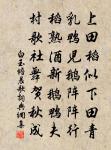 上田稻似下田青
乳鴨兒鵝陣陣行
稻熟酒新鵝鴨大
村歌社舞賀秋成
白玉蟾農歌詞典調寄